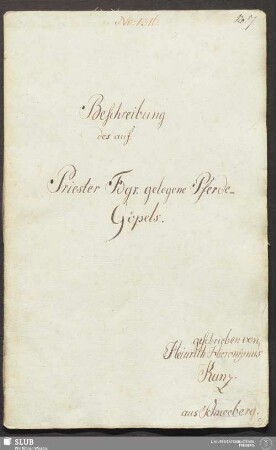 Beschreibung
des auf
Priester Fdgr. gelegene Pferde-
Göpels.
geschrieben von,
Heinrich Hieronymus
Kunz
aus Schneeberg.
SLUB
Wir führen Wissen.